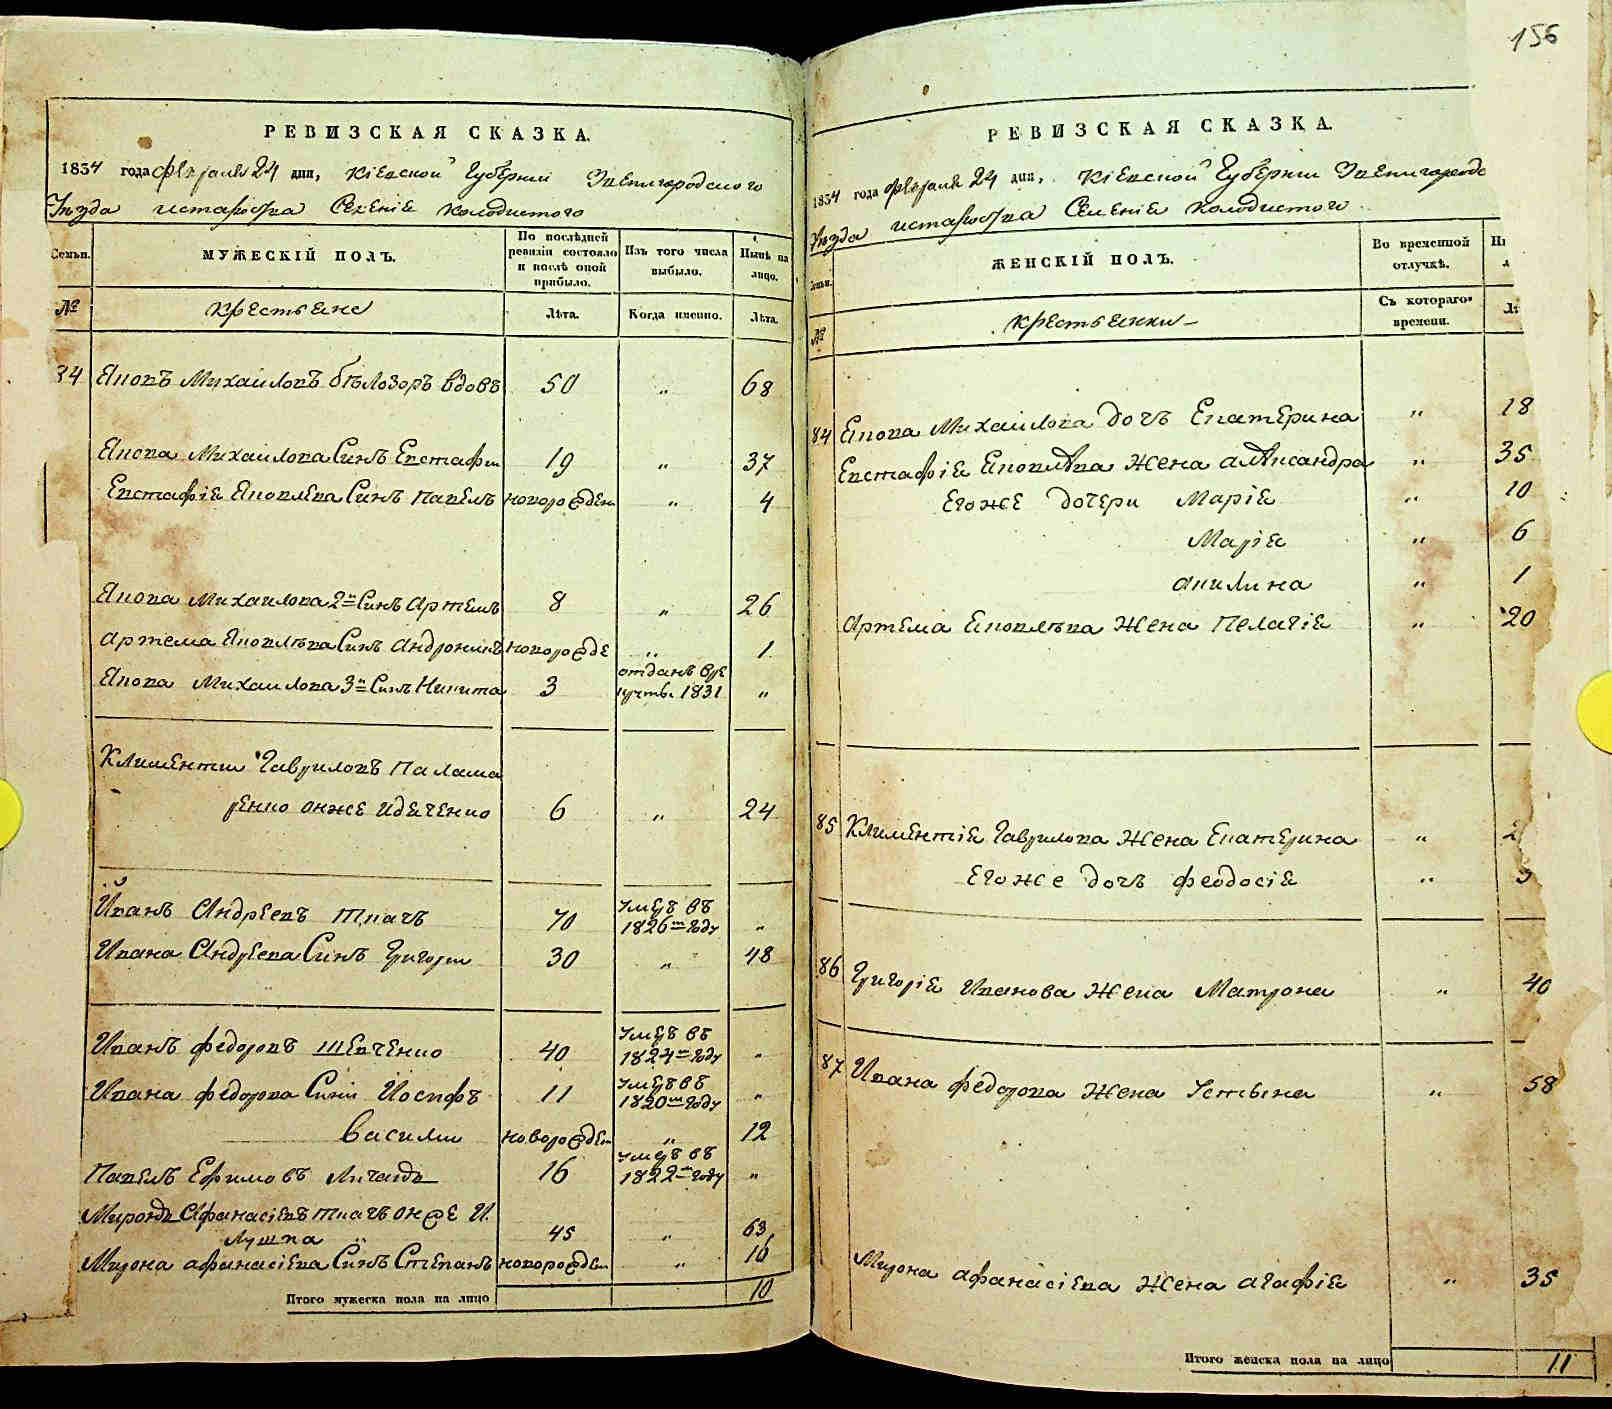 156
РЕВИЗСКАЯ СКАЗКА.
1834 года февраля 24 дня, Кіевской Губерніи Звенигородского
Уезда староства Селенія Колодистого
Семьи.
МУЖЕСКІЙ ПОЛЪ.
По послѣдней ревизіи состояло и послѣ оной прибыло.
Изъ того числа выбыло.
Нынѣ на лицо.
№
Крестьяне
Лѣта.
Когда именно.
Лѣта.
84 Яковъ Михаиловъ Бѣлозоръ вдовъ 50 „ 68
Якова Михаилова Синъ Евстафи 19 „ 37
Евстафіе Яковлева Синъ Павелъ новорожден „ 4
Якова Михаилова 2й Синъ Артемъ 8 „ 26
Артема Яковлева Синъ Андроникъ новорожде „ 1
Якова Михаилова 3й Синъ Никита 3 отданъ в ре круты 1831 „
Климентии Гавриловъ Палама
ренко онже 6 „ 24
Иванъ Андреевъ Ткачъ 70 умеръ въ 1826м году „
Ивана Андреева Синъ Григори 30 „ 48
Иванъ Федоровъ Шевченко 40 умеръ въ 1824м году „
Ивана Федорова Сини Иосифъ 11 умеръ въ 1820м году „
Васили новорожден „ 12
Павелъ Ефимовъ 16 умеръ въ 1822м году „
Миронъ Афанасіевъ Ткачъ онже И
лушка 45 „ 63
Мирона Афанасіева Синъ Степанъ новорожден „ 16
Итого мужеска пола на лицо 10
РЕВИЗСКАЯ СКАЗКА.
1834 года февраля 24 дня, Кіевской Губерніи Звенигородс
Уезда староства Селенія Колодистого
Семьи.
ЖЕНСКІЙ ПОЛЪ.
Во временной отлучкѣ.
№
Крестьянки
Съ котораго времени.
84 Якова Михаилова дочъ Екатерина „ 18
Евстафіе Яковлева Жена Александра „ 35
Егоже дочери Маріе „ 10
Маріе „ 6
Акилина „ 1
Артема Яковлева Жена Пелагіе „ 20
85 Климентіе Гаврилова Жена Екатерина „ 2
Егоже дочъ Феодосіе „ 3
86 Григоріе Иванова Жена Матрона „ 40
87 Ивана Федорова Жена Устына „ 58
Мирона Афанасіева Жена Агафіе „ 35
Итого женска пола на лицо 11